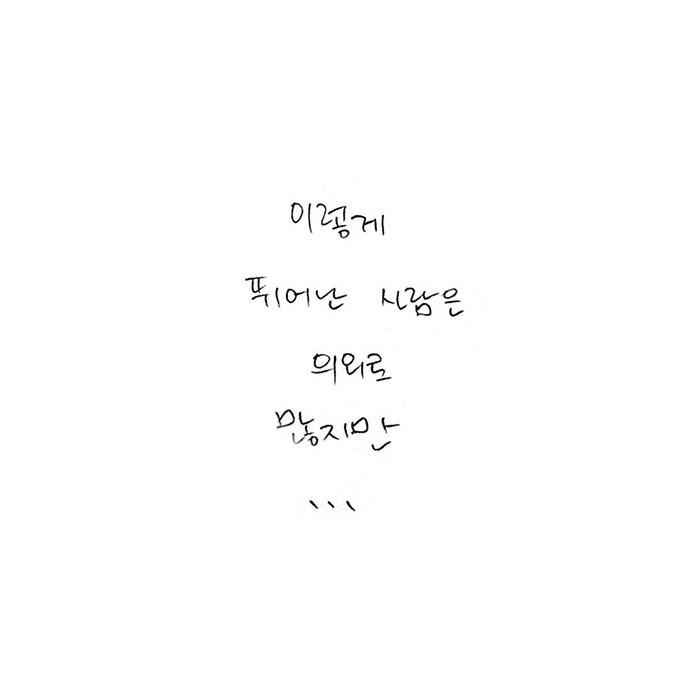 이렇게
뛰어난 사람은
의외로
많지만
...